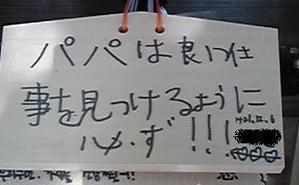 パパは良い仕
事を見つけるように
必ず!!!